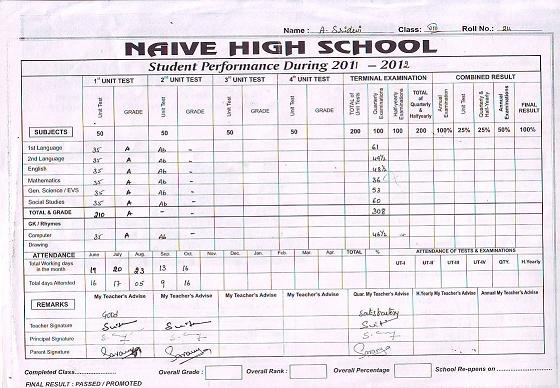 Name : A. Sridevi Class: VIII Roll No.: 24
NAIVE HIGH SCHOOL
Student Performance During 2011 - 2012
1st UNIT TEST 2nd UNIT TEST 3rd UNIT TEST 4th UNIT TEST TERMINAL EXAMINATION COMBINED RESULT
Unit Test GRADE Unit Test GRADE Unit Test GRADE Unit Test GRADE TOTAL of Unit Tests Quarterly Examinations Half-yearly Examinations TOTAL of Quarterly & Halfyearly Annual Examination Unit Test Quarterly & Half-Yearly Annual Examinations FINAL RESULT
SUBJECTS 50 50 50 50 200 100 100 200 100% 25% 25% 50% 100%
1st Language 35 A Ab - 61
2nd Language 35 A Ab - 49½
English 35 A Ab - 48½
Mathematics 35 A Ab - 36
Gen. Science / EVS 35 A Ab - 53
Social Studies 35 A Ab - 60
TOTAL & GRADE 210 A - - 308
GK / Rhymes
Computer 35 A Ab - 46½
Drawing
ATTENDANCE June July Aug. Sep. Oct. Nov. Dec. Jan. Feb. Mar. Apr. TOTAL % ATTENDANCE OF TESTS & EXAMINATIONS
Total Working days in the month 19 20 23 13 16 UT-I UT-II UT-III UT-IV QTY. H.Yearly
Total days Attended 16 17 05 9 16
REMARKS My Teacher's Advise My Teacher's Advise My Teacher's Advise My Teacher's Advise Quar. My Teacher's Advise H.Yearly My Teacher's Advise Annual My Teacher's Advise
Good Satisfactory
Teacher Signature
Principal Signature
Parent Signature
Completed Class Overall Grade : Overall Rank : Overall Percentage School Re-opens on
FINAL RESULT : PASSED / PROMOTED